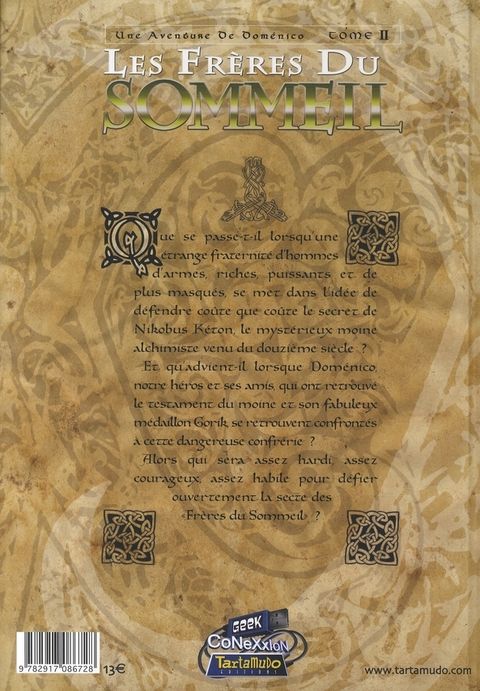 Une Aventure De Doménico TOME II
LES FRÈRES DU
SOMMEIL
Que se passe-t-il lorsqu'une
étrange fraternité d'hommes
d'armes, riches, puissants et de
plus masqués, se met dans l'idée de
défendre coûte que coûte le secret de
Nikobus Kéton, le mystérieux moine
alchimiste venu du douzième siècle ?
Et qu'advient-il lorsque Doménico,
notre héros et ses amis, qui ont retrouvé
le testament du moine et son fabuleux
médaillon Gorik, se retrouvent confrontés
à cette dangereuse confrérie ?
Alors qui sera assez hardi, assez
courageux, assez habile pour défier
ouvertement la secte des
«Frères du Sommeil» ?
GEEK
CoNeXxioN
TartaMudo
EDITIONS
9 782917 086728
13€
www.tartamudo.com